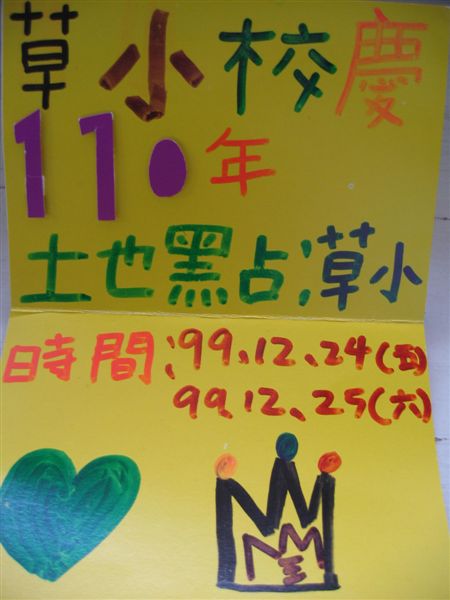 草小校慶
110年
土也黑占:草小
時間:99.12.24(五)
99.12.25(六)